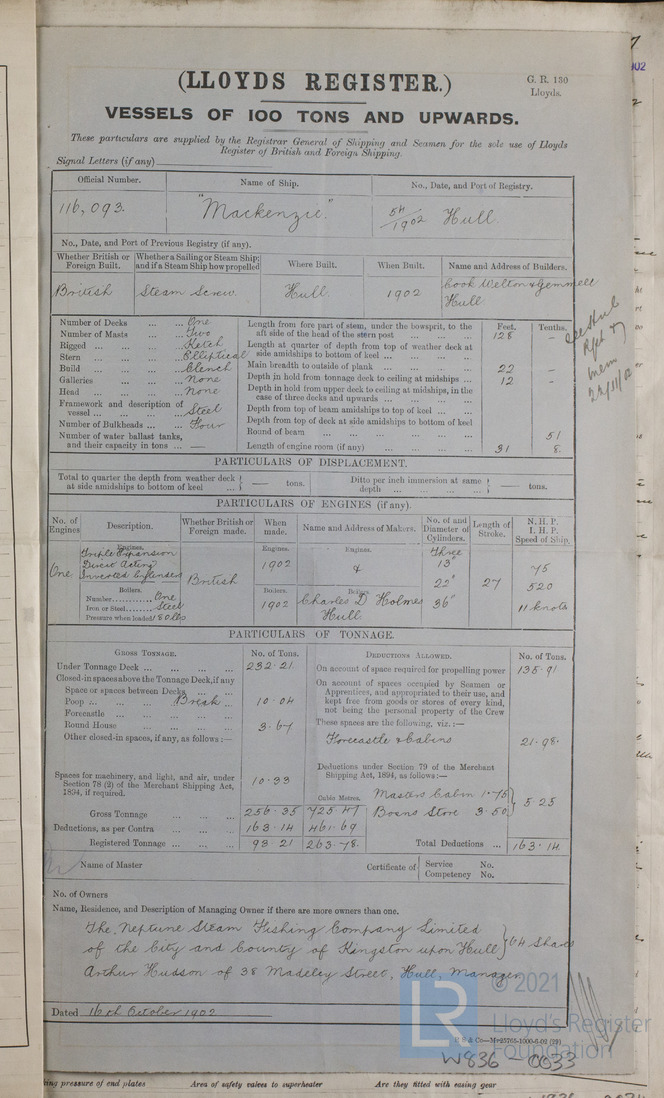 (LLOYDS REGISTER.)
G. R. 130
Lloyds.
VESSELS OF 100 TONS AND UPWARDS.
These particulars are supplied by the Registrar General of Shipping and Seamen for the sole use of Lloyds
Register of British and Foreign Shipping.
Signal Letters (if any)
Official Number. Name of Ship. No., Date, and Port of Registry.
116,093. "Mackenzie." 54/1902 Hull
No., Date, and Port of Previous Registry (if any).
Whether British or Foreign Built. Whether a Sailing or Steam Ship; and if a Steam Ship how propelled Where Built. When Built. Name and Address of Builders.
British Steam Screw. Hull. 1902 Cook Welton & Gemmell
Hull
Feet. Tenths.
Number of Decks ... ... One
Number of Masts ... ... Two
Rigged ... ... ... Ketch
Stern ... ... ... Elliptical
Build ... ... ... Clench
Galleries ... ... None
Head ... ... ... None
Framework and description of
vessel ... ... ... Steel
Number of Bulkheads ... Four
Number of water ballast tanks,
and their capacity in tons ... —
Length from fore part of stem, under the bowsprit, to the
aft side of the head of the stern post ... ... ... 128 –
Length at quarter of depth from top of weather deck at
side amidships to bottom of keel ... ... ...
Main breadth to outside of plank ... ... ... 22 –
Depth in hold from tonnage deck to ceiling at midships ... 12 –
Depth in hold from upper deck to ceiling at midships, in the
case of three decks and upwards ... ... ...
Depth from top of beam amidships to top of keel ... ...
Depth from top of deck at side amidships to bottom of keel
Round of beam ... ... ... ... 51
Length of engine room (if any) ... ... ... 31 8
22/11/02
PARTICULARS OF DISPLACEMENT.
Total to quarter the depth from weather deck
at side amidships to bottom of keel ... — tons.
Ditto per inch immersion at same
depth ... ... ... ... — tons.
PARTICULARS OF ENGINES (if any).
No. of Engines Description. Whether British or Foreign made. When made. Name and Address of Makers. No. of and Diameter of Cylinders. Length of Stroke. N. H. P. I. H. P. Speed of Ship.
One
Engines.
Triple Expansion
Direct Acting
Inverted Cylinders
Boilers.
Number............ One
Iron or Steel....... Steel
Pressure when loaded 180 lbs
British
Engines.
1902
Boilers.
1902
Engines.
&
Boilers.
Charles D Holmes
Hull
Three
13"
22"
36"
27
75
520
11 knots
PARTICULARS OF TONNAGE.
GROSS TONNAGE. No. of Tons.
Under Tonnage Deck ... ... ... ... 232.21.
Closed-in spaces above the Tonnage Deck, if any
Space or spaces between Decks ... ...
Poop ... ... ... Break ... 10.04
Forecastle ... ... ... ...
Round House ... ... ... ... 3.67
Other closed-in spaces, if any, as follows:—
Spaces for machinery, and light, and air, under
Section 78 (2) of the Merchant Shipping Act,
1894, if required. 10.33
Cubic Metres.
Gross Tonnage ... ... ... 256.35 725.47
Deductions, as per Contra ... ... ... 163.14 461.69
Registered Tonnage ... ... ... 93.21 263.78.
DEDUCTIONS ALLOWED. No. of Tons.
On account of space required for propelling power 135.91
On account of spaces occupied by Seamen or
Apprentices, and appropriated to their use, and
kept free from goods or stores of every kind,
not being the personal property of the Crew
These spaces are the following, viz.:—
Forecastle & Cabins 21.98.
Deductions under Section 79 of the Merchant
Shipping Act, 1894, as follows:—
Masters Cabin 1.75
Boxns Store 3.50
5.25
Total Deductions ... 163.14
Name of Master Certificate of Service No.
Competency No.
No. of Owners
Name, Residence, and Description of Managing Owner if there are more owners than one.
The Neptune Steam Fishing Company Limited
of the City and County of Kingston upon Hull 64 Shares
Arthur Hudson of 38 Madeley Street, Hull, Manager
Dated 16th October 1902
LR © 2021
Lloyd's Register
Foundation
P. & Co—Mr25765-1000-6-02 (29)
W836-0033
ing pressure of end plates Area of safety valves to superheater Are they fitted with easing gear